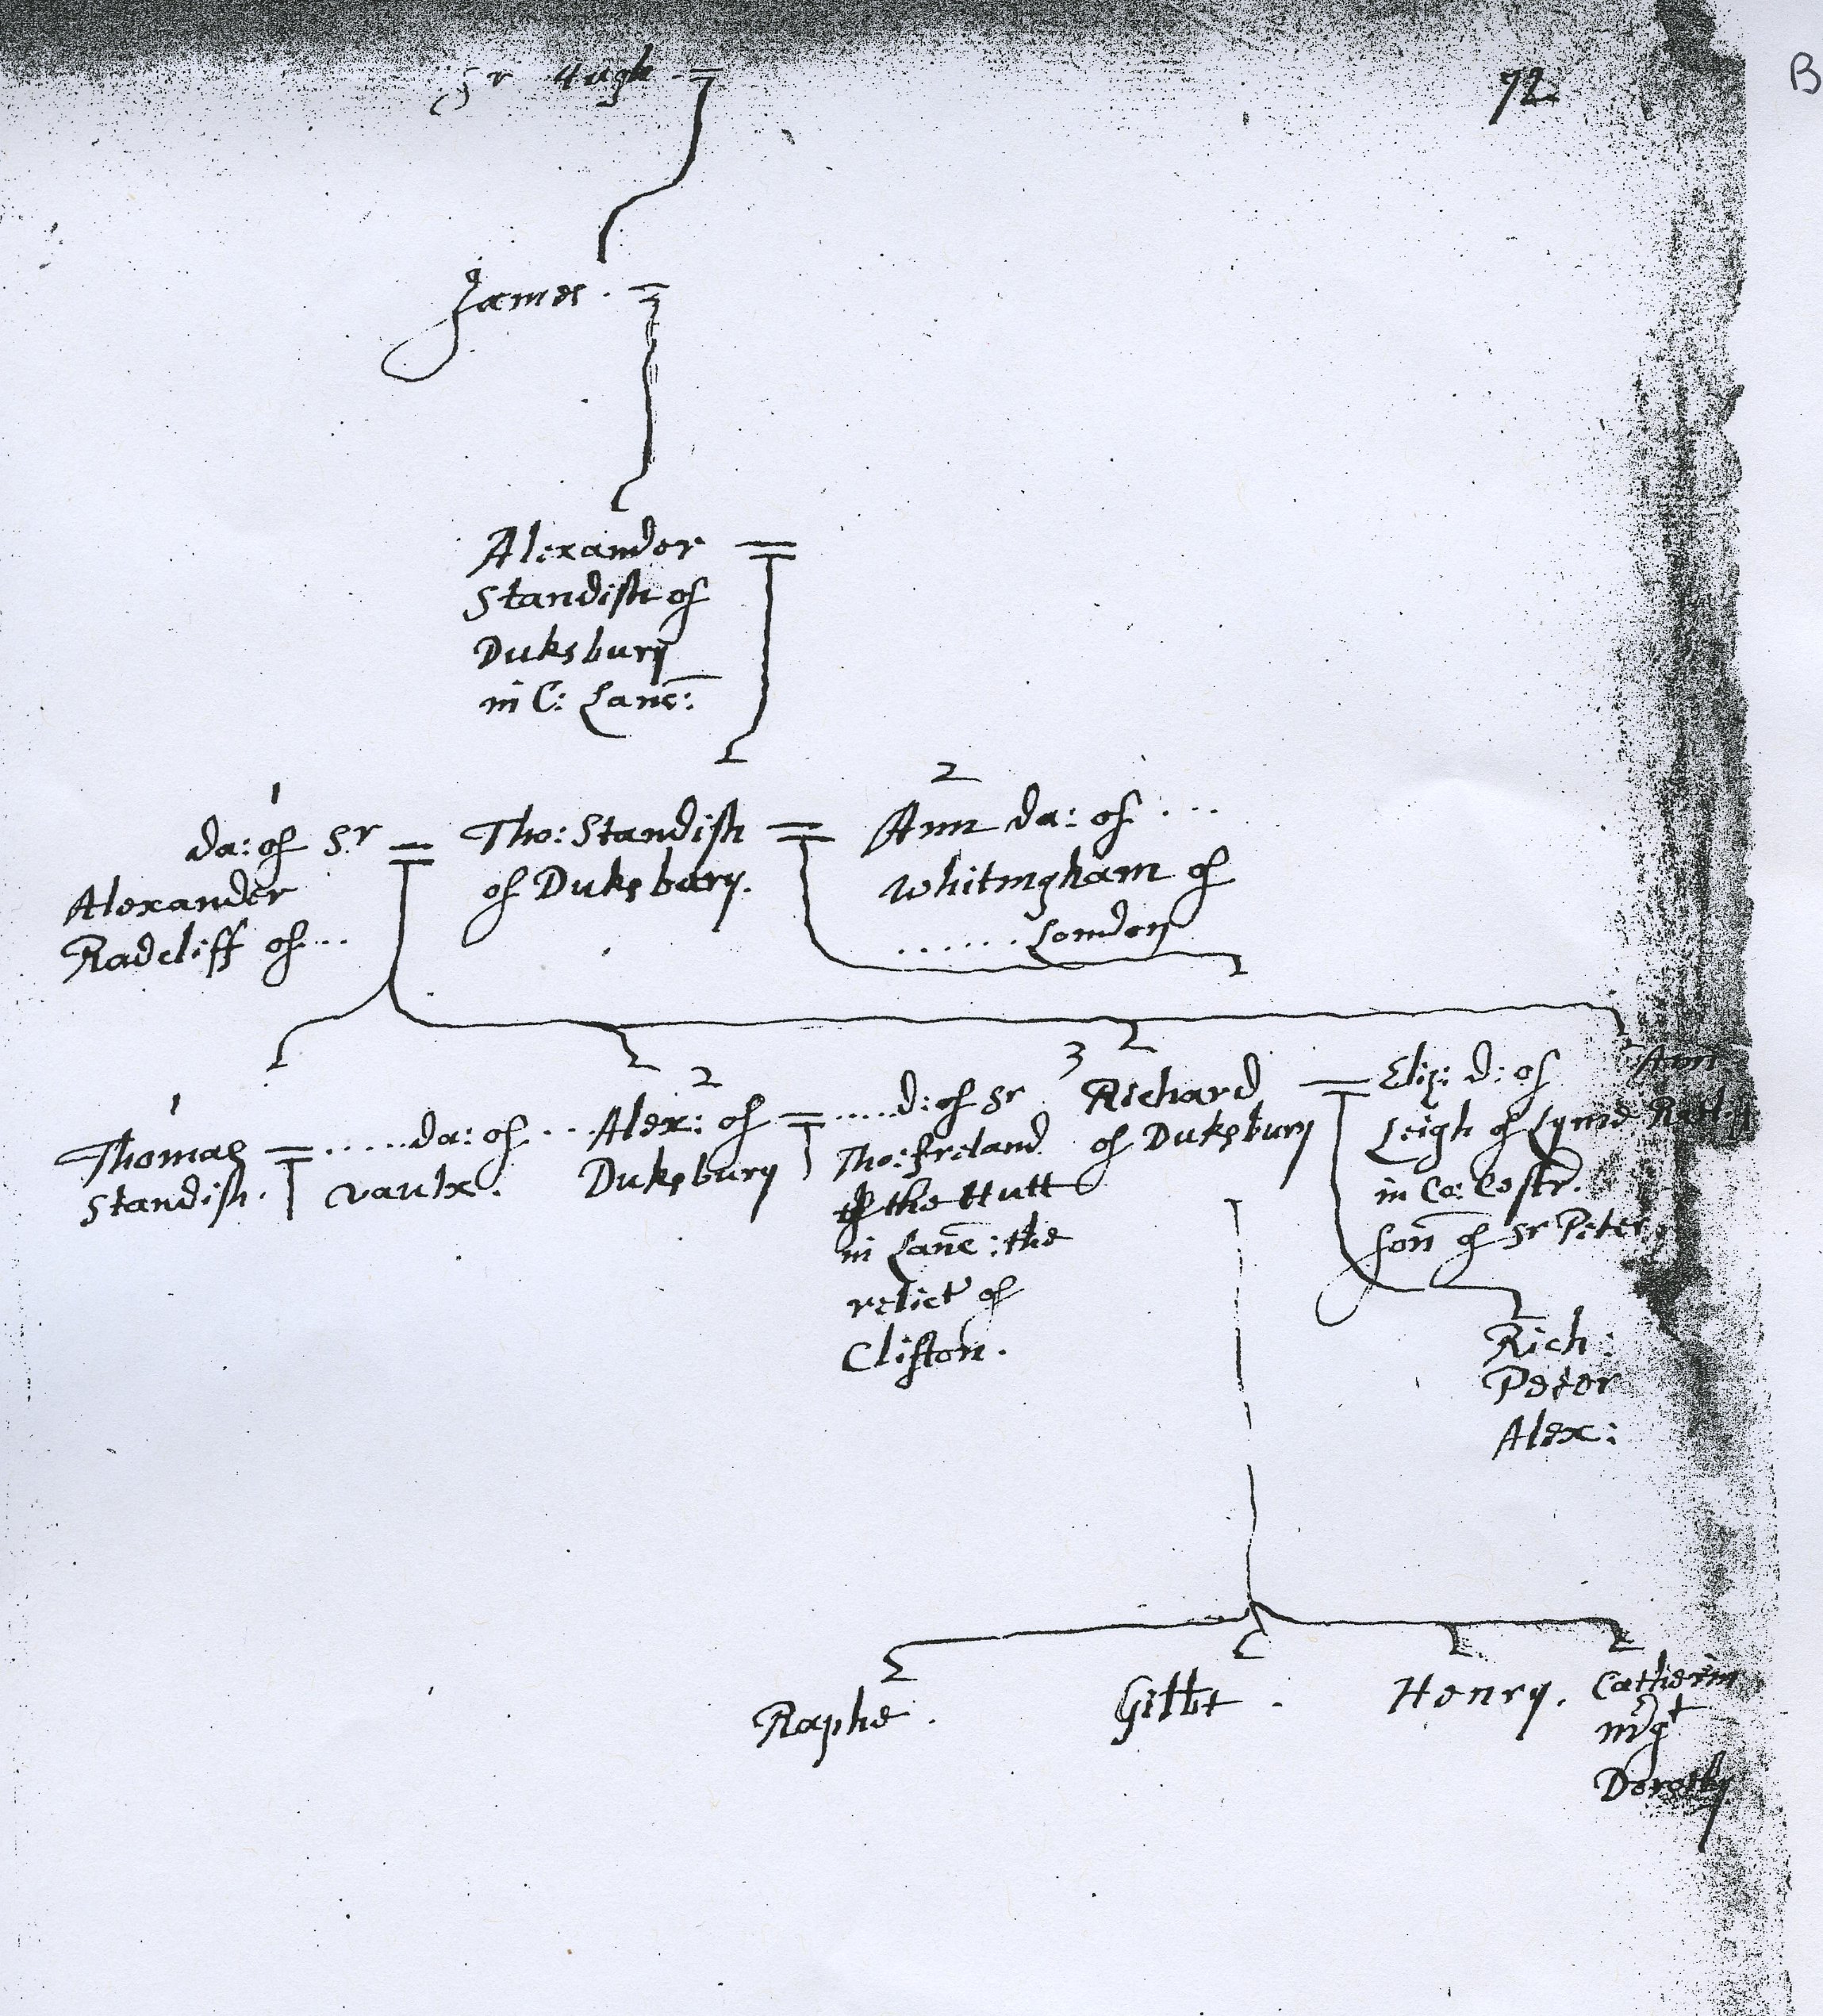 Sr Hugh
72
B
James.
Alexander
Standish of
Duksbury
in C: Lanc:
1
da: of Sr
Alexander
Radcliff of...
Tho: Standish
of Duksbury.
2
Ann da: of ...
Whitingham of
...... London
1
Thomas
Standish.
.....da: of ..
vaulx.
2
Alex: of
Duksbury
.....d: of Sr
Tho: Ireland
of the Hutt
in Lanc: the
relict of
Clifton.
3
Richard
of Duksbury
Eliz: d: of
Leigh of Lyme
in Co: Cestr.
son of Sr Peter
Ann
Rich:
Peter
Alex:
Raphe.
Gilbt.
Henry.
Catherin
mgt
Dorothy